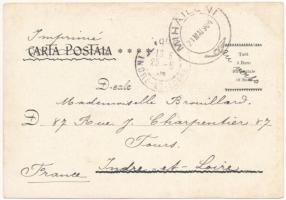 Imprimé
CARTA POSTALA
MIHAILENI
D-sale
Mademoiselle Brouillard.
D 87 Rue J. Charpentier 87
Tours.
Indre-et-Loire
France